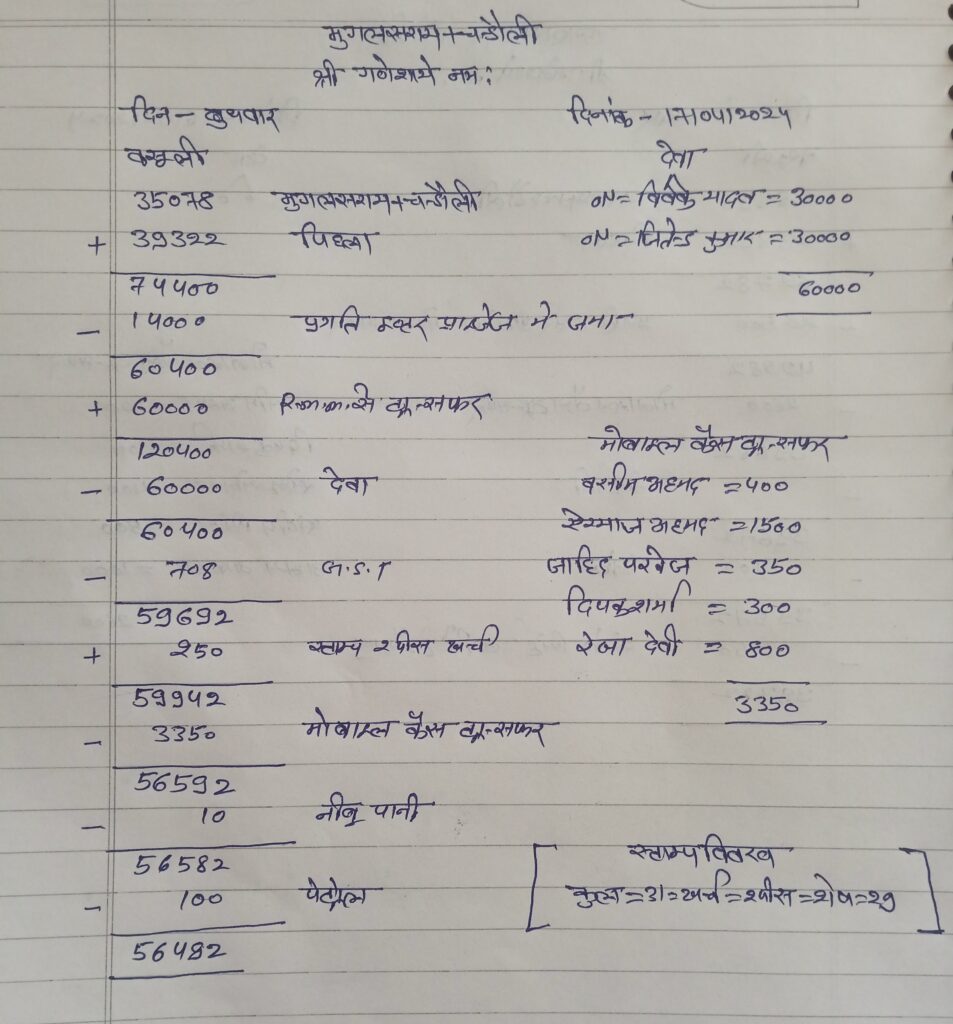 मुगलसराय+चन्दौली
श्री गणेशाये नमः
दिन - बुधवार दिनांक - 17/04/2024
वसूली देवा
35078 मुगलसराय+चन्दौली ON = विवेक यादव = 30000
+ 39322 पिछला ON = जितेन्द्र कुमार = 30000
74400 60000
- 14000 प्रगति इन्टर प्राइजेज मे जमा
60400
+ 60000 R.m.m. से ट्रान्सफर
120400 मोबाइल कैस ट्रान्सफर
- 60000 देवा वसीम अहमद = 400
60400 अहमद = 1500
- 708 G.S.T जाहिद परवेज = 350
59692 दिपक शर्मा = 300
+ 250 स्टाम्प २ पीस खर्च रेखा देवी = 800
59942 3350
- 3350 मोबाइल कैस ट्रान्सफर
56592
- 10 नीबू पानी
56582 स्टाम्प विवरण
- 100 पेट्रोल कुल = 31 = खर्च = २ पीस = शेष = 29
56482